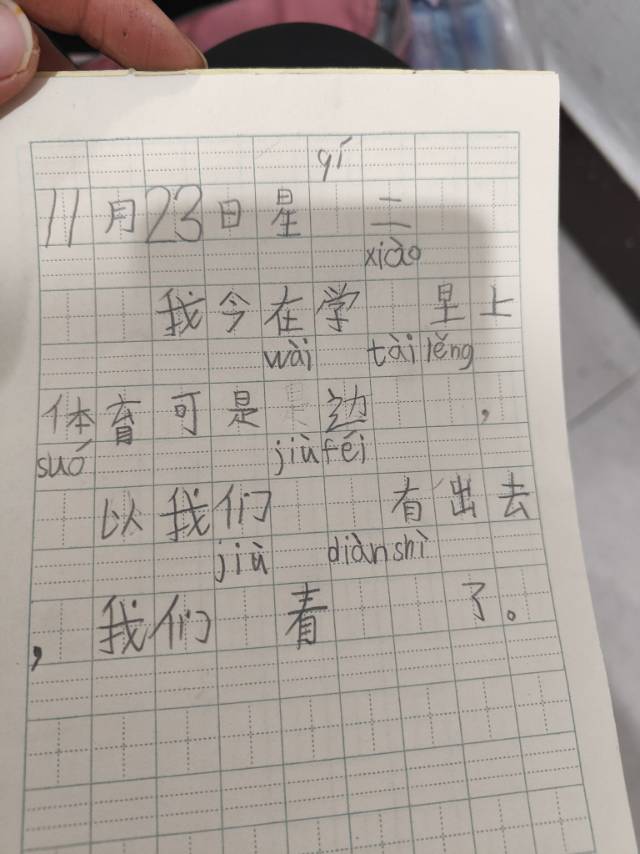 qí
11月23日星 二
xiào
我今在学 早上
wài tài lěng
体育可是边 ，
suó jiù féi
以我们 有出去
jiù diàn shì
，我们 看 了。